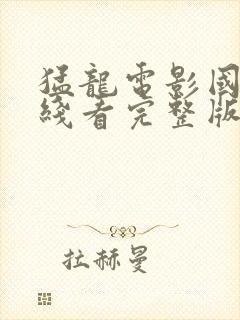 猛龍電影國
綫看完整版
拉赫曼